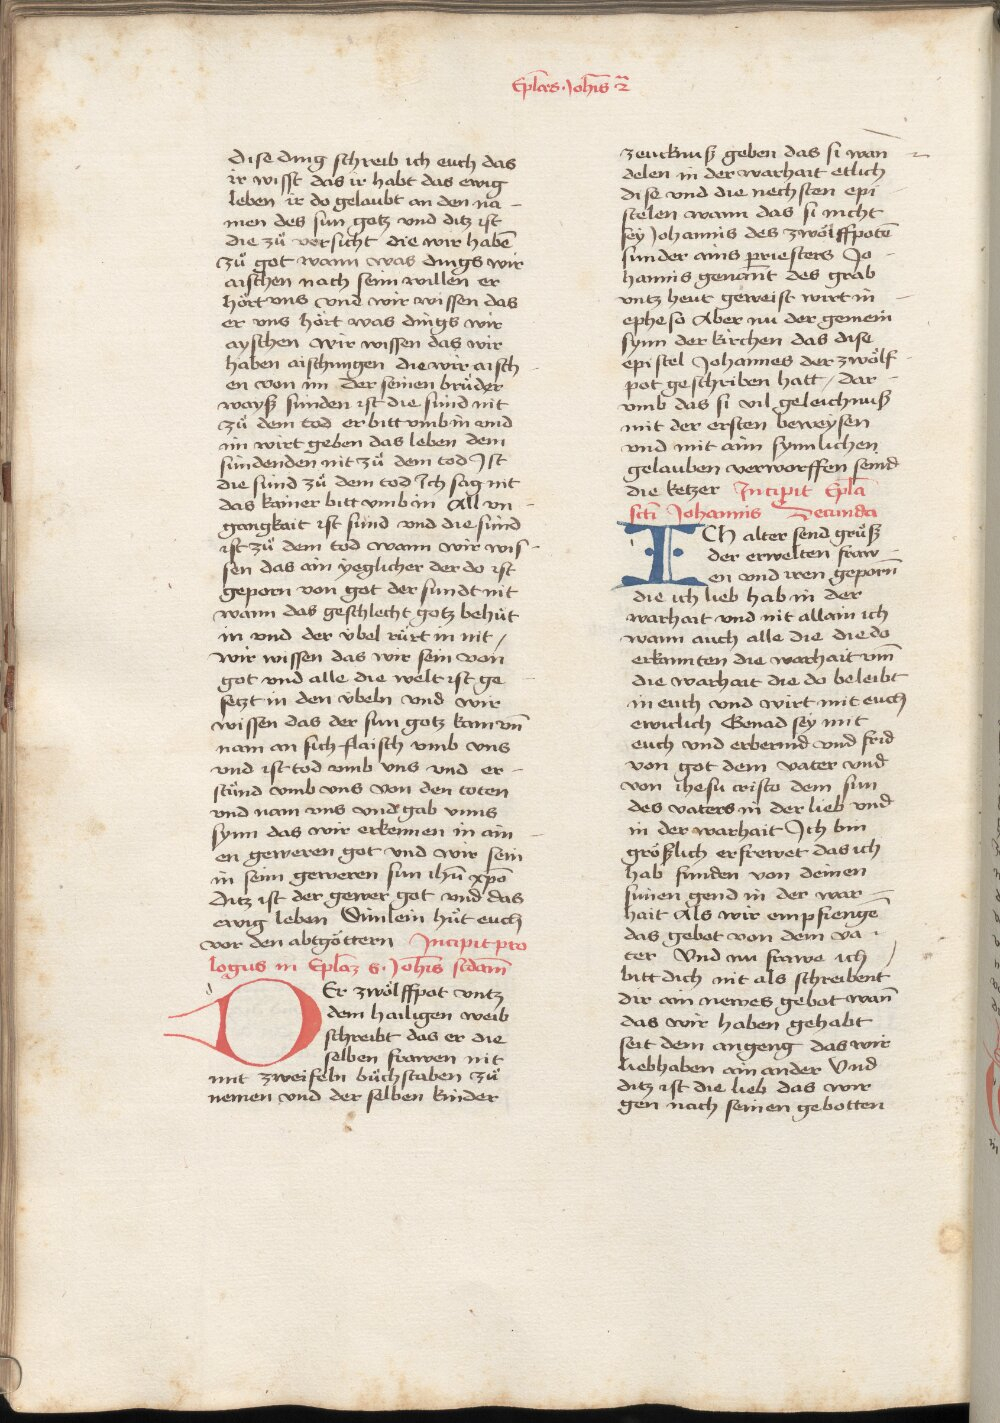 Eplas · Joh̄is 2ᵃ
dise ding schreib ich euch das
ir wisst das ir habt das ewig
leben ir do gelaubt an den na -
men des sun gotz vnd ditz ist
die zů versicht die wir habē
zů got wann was dings wir
aischen nach seim willen er
hört vns vnd wir wissen das
er vns hört was dings wir
ayschen wir wissen das wir
haben aischungen die wir aisch -
en von im Der seinen brůder
wayß sünden ist die sünd nit
zů dem tod er bitt vmb in vnd
im wirt geben das leben dem
sündenden nit zů dem tod Ist
die sünd zů dem tod Ich sag nit
das kainer bitt vmb in All vn -
gangkait ist sünd vnd die sünd
ist zů dem tod wann wir wis -
sen das ain yeglicher der do ist
geporn von got der sundt nit
wann das geschlecht gotz behüt
in vnd der v̇bel rürt in nit /
wir wissen das wir sein von
got vnd alle die welt ist ge -
setzt in den v̇beln vnd wir
wissen das der sun gotz kam vn̄
nam an sich flaisch vmb vns
vnd ist tod vmb vns vnd er -
stůnd vmb vns von den toten
vnd nam vns vnd gab vnns
synn das wir erkennen in ain -
en geweren got vnd wir sein
in seim geweren sun ihū xpō
Ditz ist der gewer got vnd das
ewig leben Sünlein hůt euch
vor den abtgöttern Incipit pro
logus in Eplaz s· Joh̄is scdam̄
DEr zwölffpot vntz
dem hailigen weib
schreibt das er die
selben frawen nit
mit zweifeln bůchstaben zů
nemen vnd der selben kinder
zeucknuß geben das si wan -
delen in der warhait etlich
dise vnd die nechsten epi -
stelen wann das si nicht
sey Johannis des zwölffpotē
sunder ains priesters Jo -
hannis genan̄t des grab
vntz heut geweist wirt in -
epheso Aber nu der gemein
synn der kirchen das dise
epistel Johannes der zwölf -
pot geschriben hatt / dar -
vmb das si vil geleichnuß
mit der ersten beweysen
vnd mit aim synnlichen
gelauben verworffen send
die ketzer Incipit Epl̄a
scti Johannis Secunda
ICh alter send grůß
der erwelten fraw -
en vnd iren geporn̄
die ich lieb hab in der
warhait vnd nit allain ich
wann auch alle die die do
erkannten die warhait vm̄
die warhait die do beleibt
in euch vnd wirt mit euch
ewiclich Genad sey mit
euch vnd erbermd vnd frid
von got dem vater vnd
von ihesu cristo dem sun
des vaters in der lieb vnd
in der warhait Ich bin
größlich erfrewet das ich
hab funden von deinen
sünen gend in der war =
hait Als wir empfiengē
das gebot von dem va -
ter Vnd nu frawe ich
bitt dich nit als schreibent
dir ain newes gebot wan̄
das wir haben gehabt
seit dem angeng das wir
liebhaben ain ander Vnd
ditz ist die lieb das wir
gen nach seinen gebotten